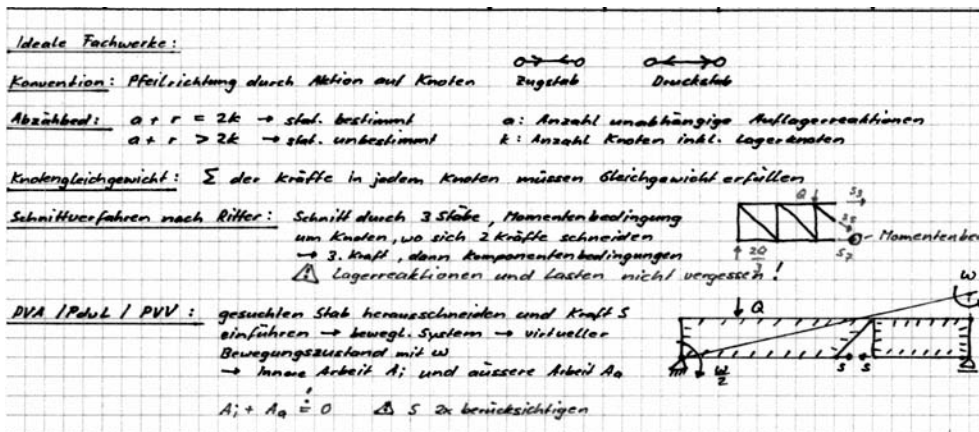 Ideale Fachwerke:
Konvention: Pfeilrichtung durch Aktion auf Knoten Zugstab Druckstab
Abzählbed: a + r = 2k → stat. bestimmt a: Anzahl unabhängige Auflagerreaktionen
a + r > 2k → stat. unbestimmt k: Anzahl Knoten inkl. Lagerknoten
Knotengleichgewicht: Σ der Kräfte in jedem Knoten müssen Gleichgewicht erfüllen
Schnittverfahren nach Ritter: Schnitt durch 3 Stäbe, Momentenbedingung Q
um Knoten, wo sich 2 Kräfte schneiden Momentenbed
→ 3. Kraft, dann Komponentenbedingungen 2Q/3 S7
⚠ Lagerreaktionen und Lasten nicht vergessen!
PVA / PdvL / PVV: gesuchten Stab herausschneiden und Kraft S Q ω
einführen → bewegl. System → virtueller
Bewegungszustand mit ω
→ Innere Arbeit Ai und äussere Arbeit Aa ω/2 S S
Ai + Aa != 0 ⚠ S 2x berücksichtigen